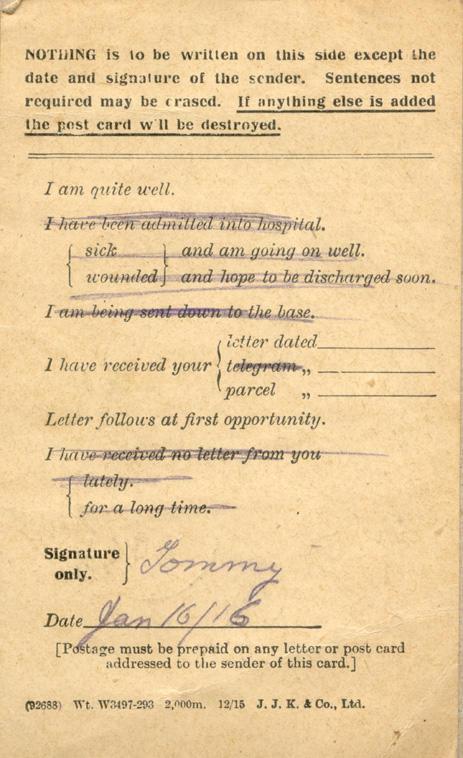 NOTHING is to be written on this side except the
date and signature of the sender. Sentences not
required may be erased. If anything else is added
the post card will be destroyed.
I am quite well.
I have been admitted into hospital.
sick } and am going on well.
wounded } and hope to be discharged soon.
I am being sent down to the base.
letter dated
I have received your { telegram „
parcel „
Letter follows at first opportunity.
I have received no letter from you
lately.
for a long time.
Signature
only. } Tommy
Date Jan 16/16
[Postage must be prepaid on any letter or post card
addressed to the sender of this card.]
(92688) Wt. W3497-293 2,000m. 12/15 J. J. K. & Co., Ltd.